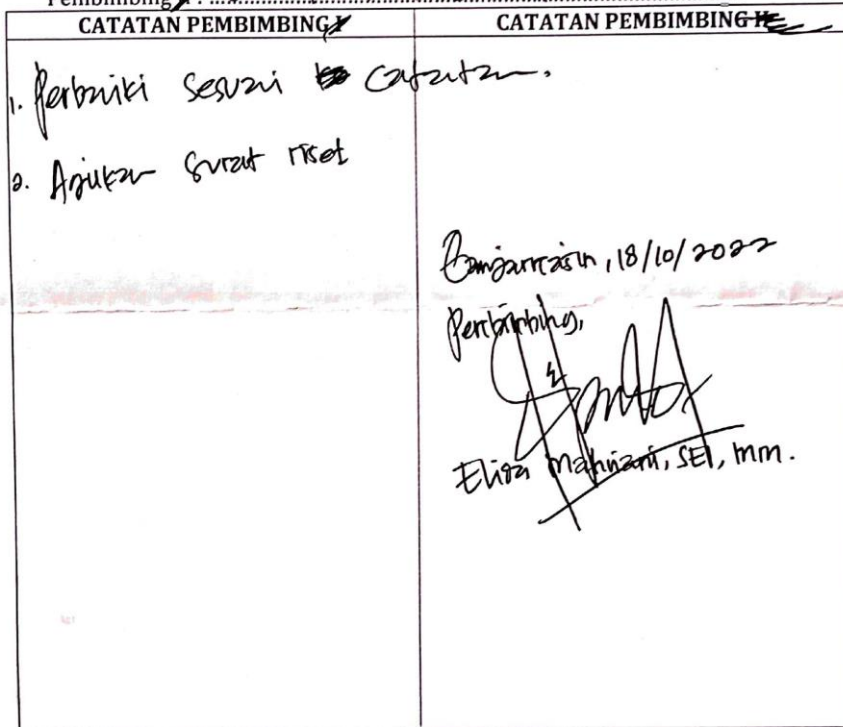 Pembimbing : ..........
CATATAN PEMBIMBING
CATATAN PEMBIMBING
1. Perbaiki sesuai catatan.
2. Ajukan surat riset
Banjarmasin, 18/10/2022
Pembimbing,
Elisa Mahriani, SEI, MM.